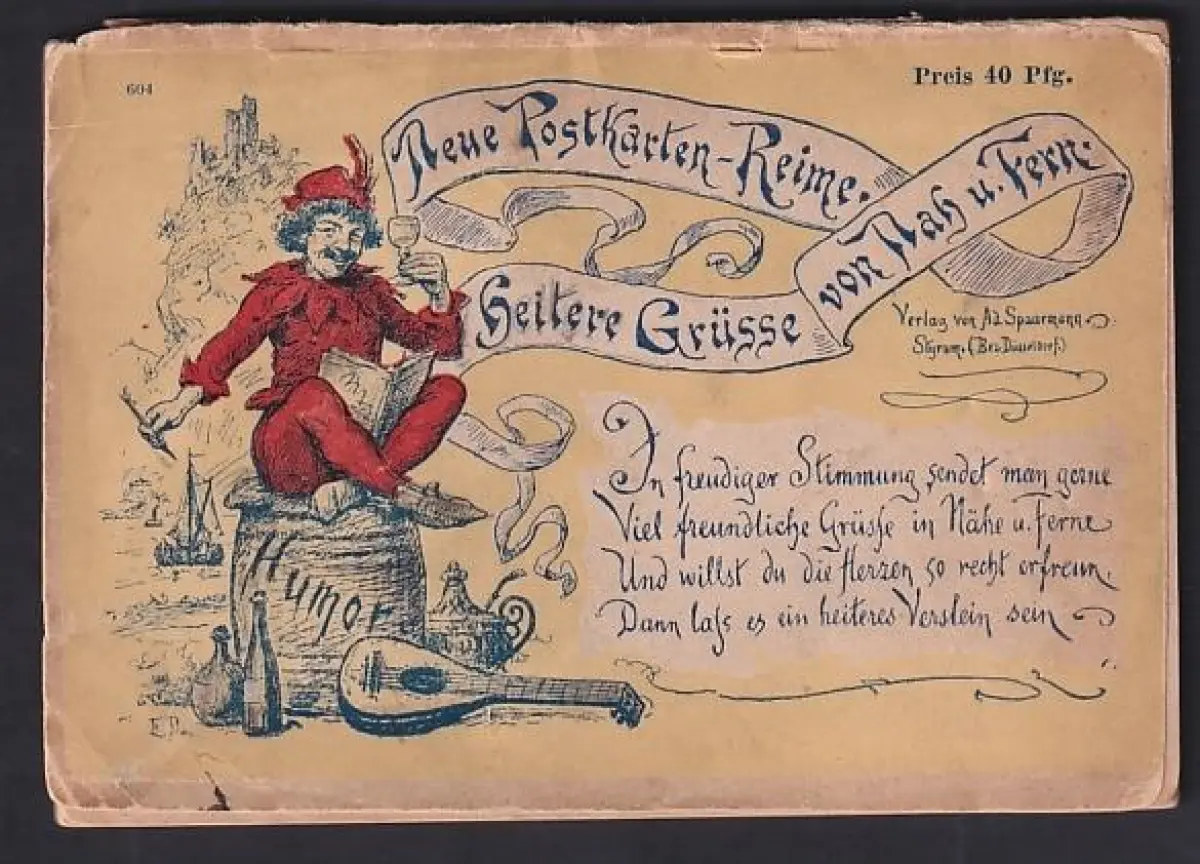 604
Preis 40 Pfg.
Neue Postkarten-Reime.
von Nah u. Fern.
Heitere Grüsse
Verlag von Ad. Spaarmann
Styrum. (Bez. Düsseldorf.)
In freudiger Stimmung sendet man gerne
Viel freundliche Grüße in Nähe u. Ferne
Und willst du die Herzen so recht erfreun,
Dann laß es ein heiteres Verslein sein
Humor